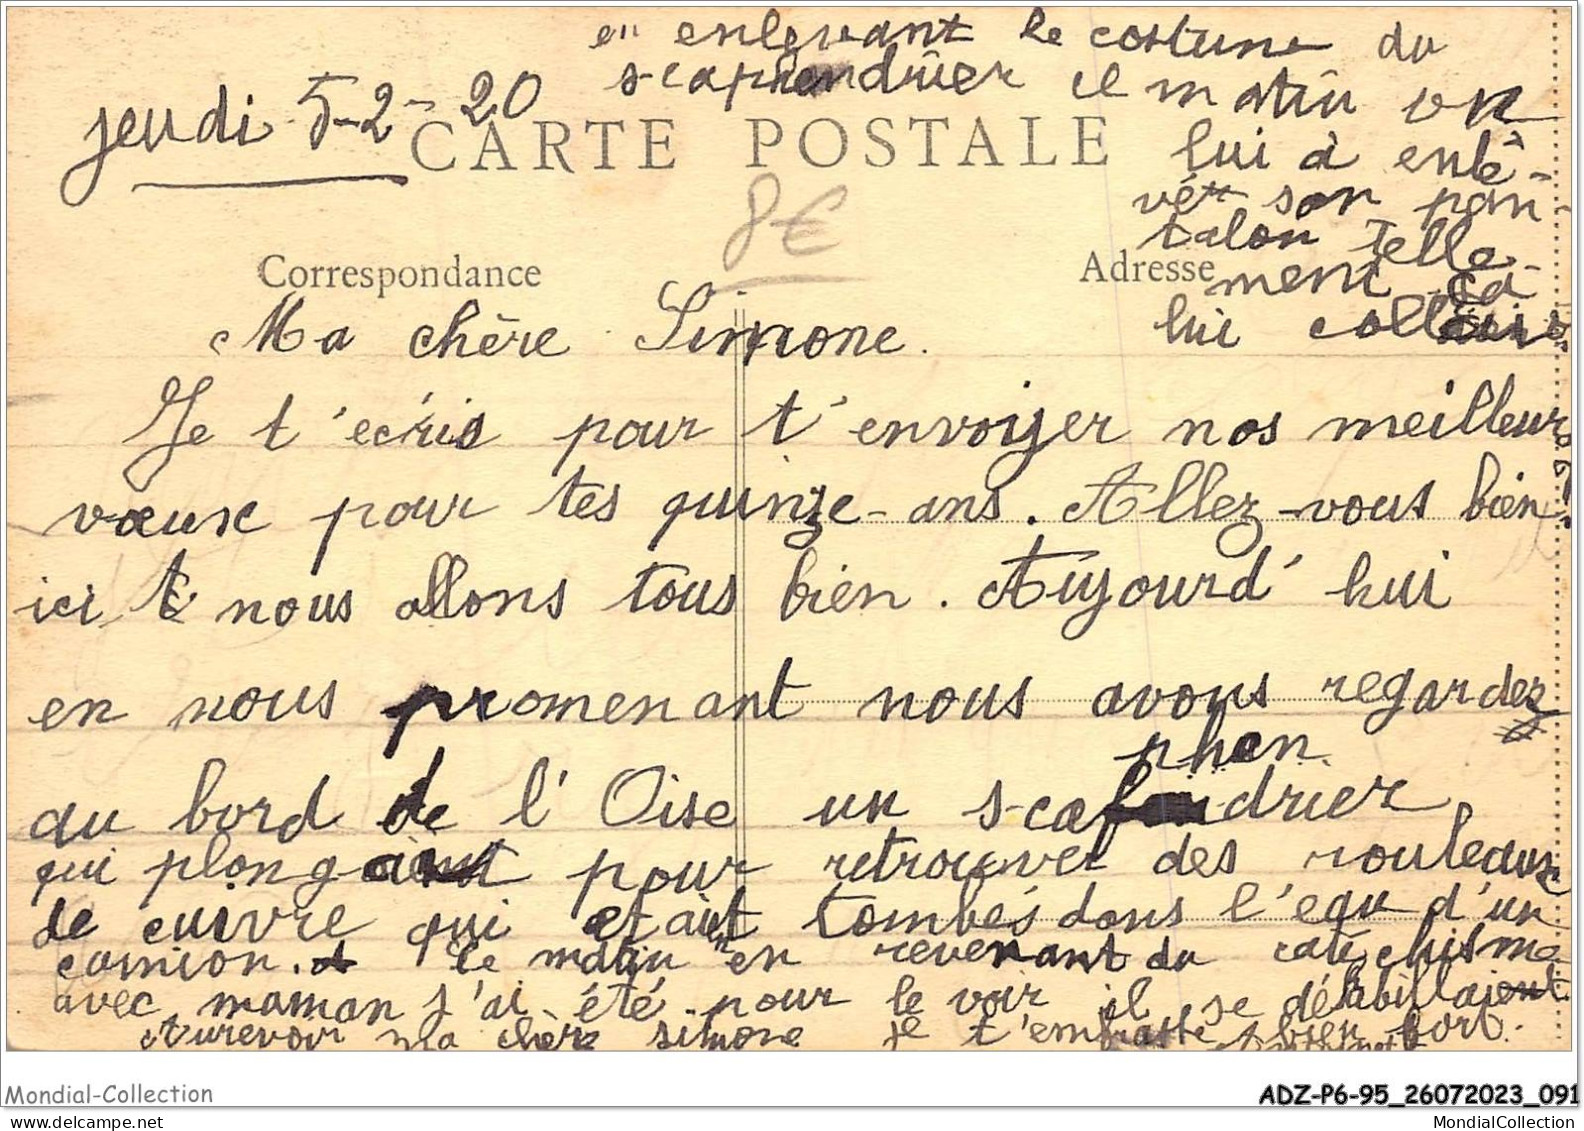 en enlevant le costume du
scaphendrier ce matin on
lui à enlê-
vér son pan-
talon telle-
ment ça
lui collais
jeudi 5-2-20
CARTE POSTALE
8€
Correspondance
Adresse
Ma chère Simone.
Je t'ecris pour t'envoyer nos meilleurs
vœux pour tes quinze-ans. Allez-vous bien
ici nous allons tous bien. Aujourd'hui
en nous promenant nous avons regardez
au bord de l'Oise un scaphendrier
qui plongait pour retrouver des rouleaux
de cuivre qui etait tombés dans l'eau d'un
camion. Le matin en revenant du catechisme
avec maman j'ai été pour le voir il se déshabillait
Aurevoir ma chère simone je t'embrasse bien fort.
Mondial-Collection
ADZ-P6-95_26072023_091
MondialCollection